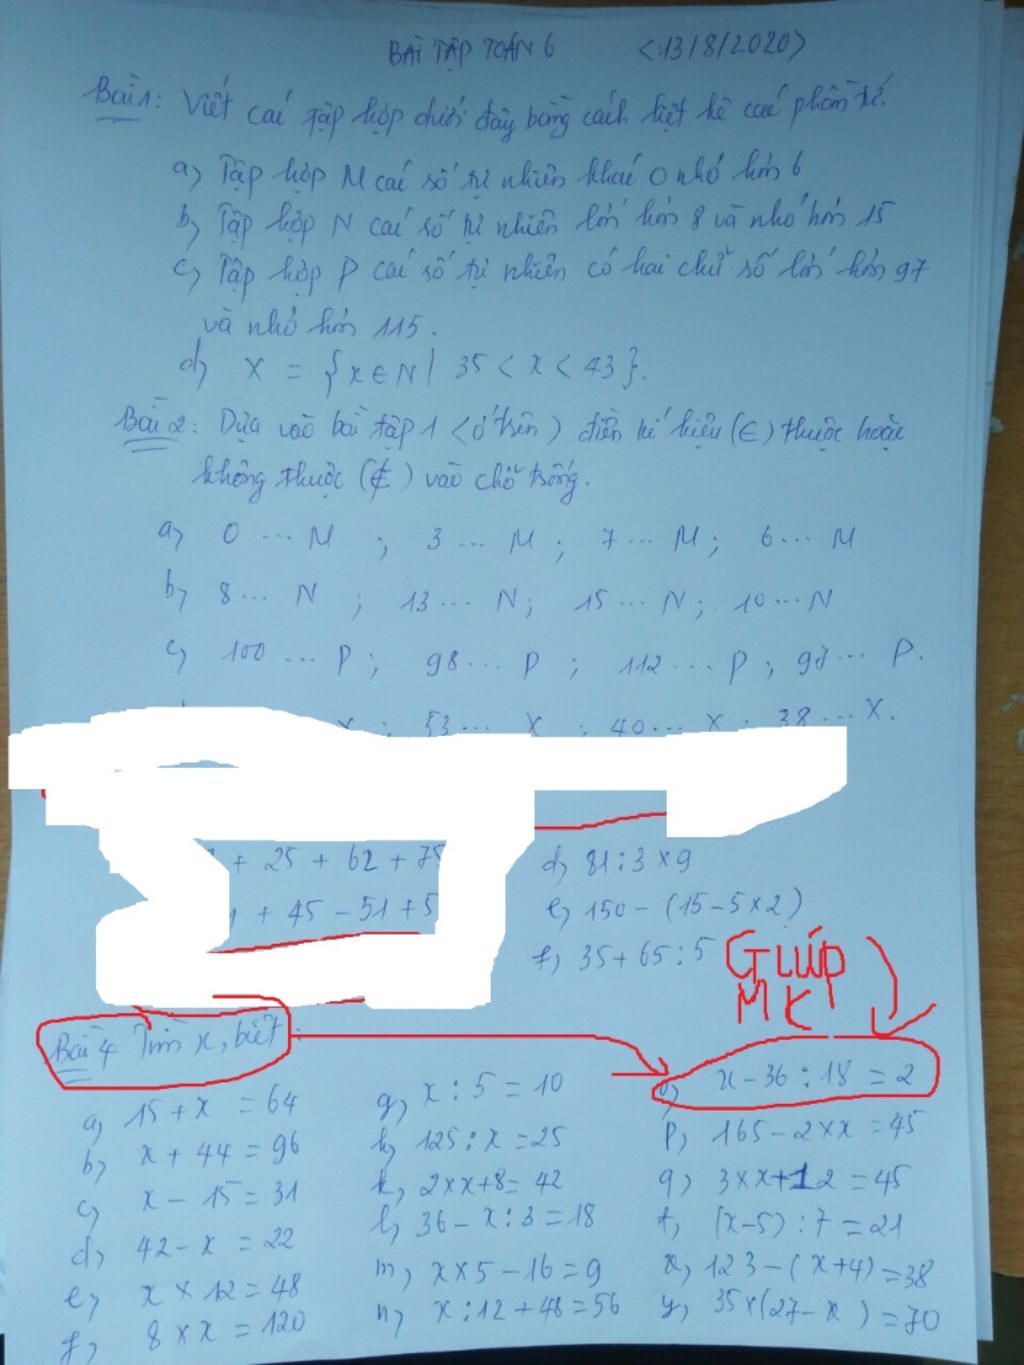 BÀI TẬP TOÁN 6 <13/8/2020>
Bài 1: Viết các tập hợp dưới đây bằng cách liệt kê các phần tử.
a) Tập hợp M các số tự nhiên khác 0 nhỏ hơn 6
b) Tập hợp N các số tự nhiên lớn hơn 8 và nhỏ hơn 15
c) Tập hợp P các số tự nhiên có hai chữ số lớn hơn 97
và nhỏ hơn 115.
d) X = {x ∈ N | 35 < x < 43}.
Bài 2: Dựa vào bài tập 1 <ở trên) điền kí hiệu (∈) thuộc hoặc
không thuộc (∉) vào chỗ trống.
a) 0 ... M ; 3 ... M ; 7 ... M ; 6 ... M
b) 8 ... N ; 13 ... N ; 15 ... N ; 10 ... N
c) 100 ... P ; 98 ... P ; 112 ... P ; 97 ... P.
X ; 53 ... X ; 40 ... X ; 38 ... X.
+ 25 + 62 + 75
+ 45 - 51 + 5
d) 81 : 3 x 9
e) 150 - (15 - 5 x 2)
f) 35 + 65 : 5
GIÚP
MK
Bài 4 Tìm x, biết :
a) 15 + x = 64
b) x + 44 = 96
c) x - 15 = 31
d) 42 - x = 22
e) x x 12 = 48
f) 8 x x = 120
g) x : 5 = 10
h) 125 : x = 25
k) 2 x x + 8 = 42
l) 36 - x : 3 = 18
m) x x 5 - 16 = 9
n) x : 12 + 48 = 56
x - 36 : 18 = 2
p) 165 - 2 x x = 45
q) 3 x x + 12 = 45
t) (x - 5) : 7 = 21
123 - (x + 4) = 38
y) 35 x (27 - x) = 70